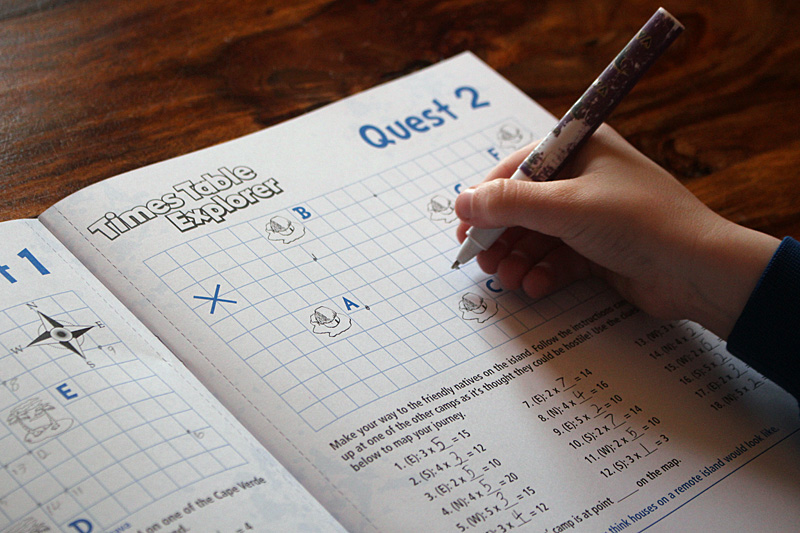 Quest 2
Times Table
Explorer
B
F
A
C
X
t 1
N
W
E
S
E
D
Make your way to the friendly natives on the island. Follow the instructions
up at one of the other camps as it's thought they could be hostile! Use the
below to map your journey.
1. (E): 3 x 5 = 15
2. (S): 4 x 3 = 12
3. (E): 2 x 5 = 10
4. (N): 4 x 5 = 20
5. (W): 5 x 3 = 15
3 x 4 = 12
7. (E): 2 x 7 = 14
8. (N): 4 x 4 = 16
9. (E): 5 x 2 = 10
10. (S): 2 x 7 = 14
11. (W): 2 x 5 = 10
12. (S): 3 x 1 = 3
13. (W):
14. (N): 4 x
15. (W): 2 x 5
16. (S): 5 x 2
17. (E): 2 x
18. (W): 2 x
camp is at point ____ on the map.
think houses on a remote island would look like.
on one of the Cape Verde
= 4